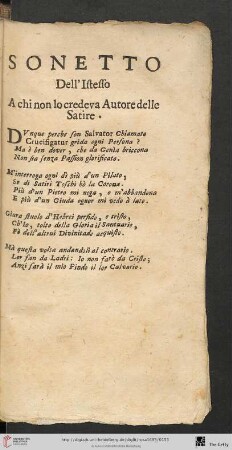 SONETTO
Dell'Istesso
A chi non lo credeva Autore delle
Satire.
DVnque perche son Salvator Chiamato
Crucifigatur grida ogni Persona?
Ma è ben dover, che da Genta briccona
Non sia senza Passion glorificato.
M'interroga ogni dì più d'un Pilato,
Se di Satiri Toschi hò la Corona.
Più d'un Pietro mi nega, e m'abbandona
E più d'un Giuda ognor mi vedo à lato.
Giura stuolo d'Hebrei perfido, e tristo,
Ch'Io, tolto della Gloria il Santuario,
Fà dell'altrui Divinitade acquisto.
Mà questa volta andandoli al contrario.
Lor fan da Ladri: Io non farò da Cristo;
Anzi sarà il mio Pindo il lor Calvario.